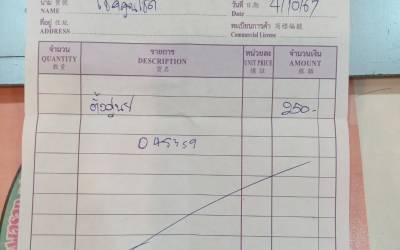 นาม 寶號 วันที่ 日期 4/10/67
NAME Date
ที่อยู่ 住址 ทะเบียนการค้า 商標編號
ADDRESS Commercial License
จำนวน รายการ หน่วยละ จำนวนเงิน
QUANTITY DESCRIPTION UNIT PRICE AMOUNT
數量 貨名 價目 銀額
ตั้งศูนย์ 250.-